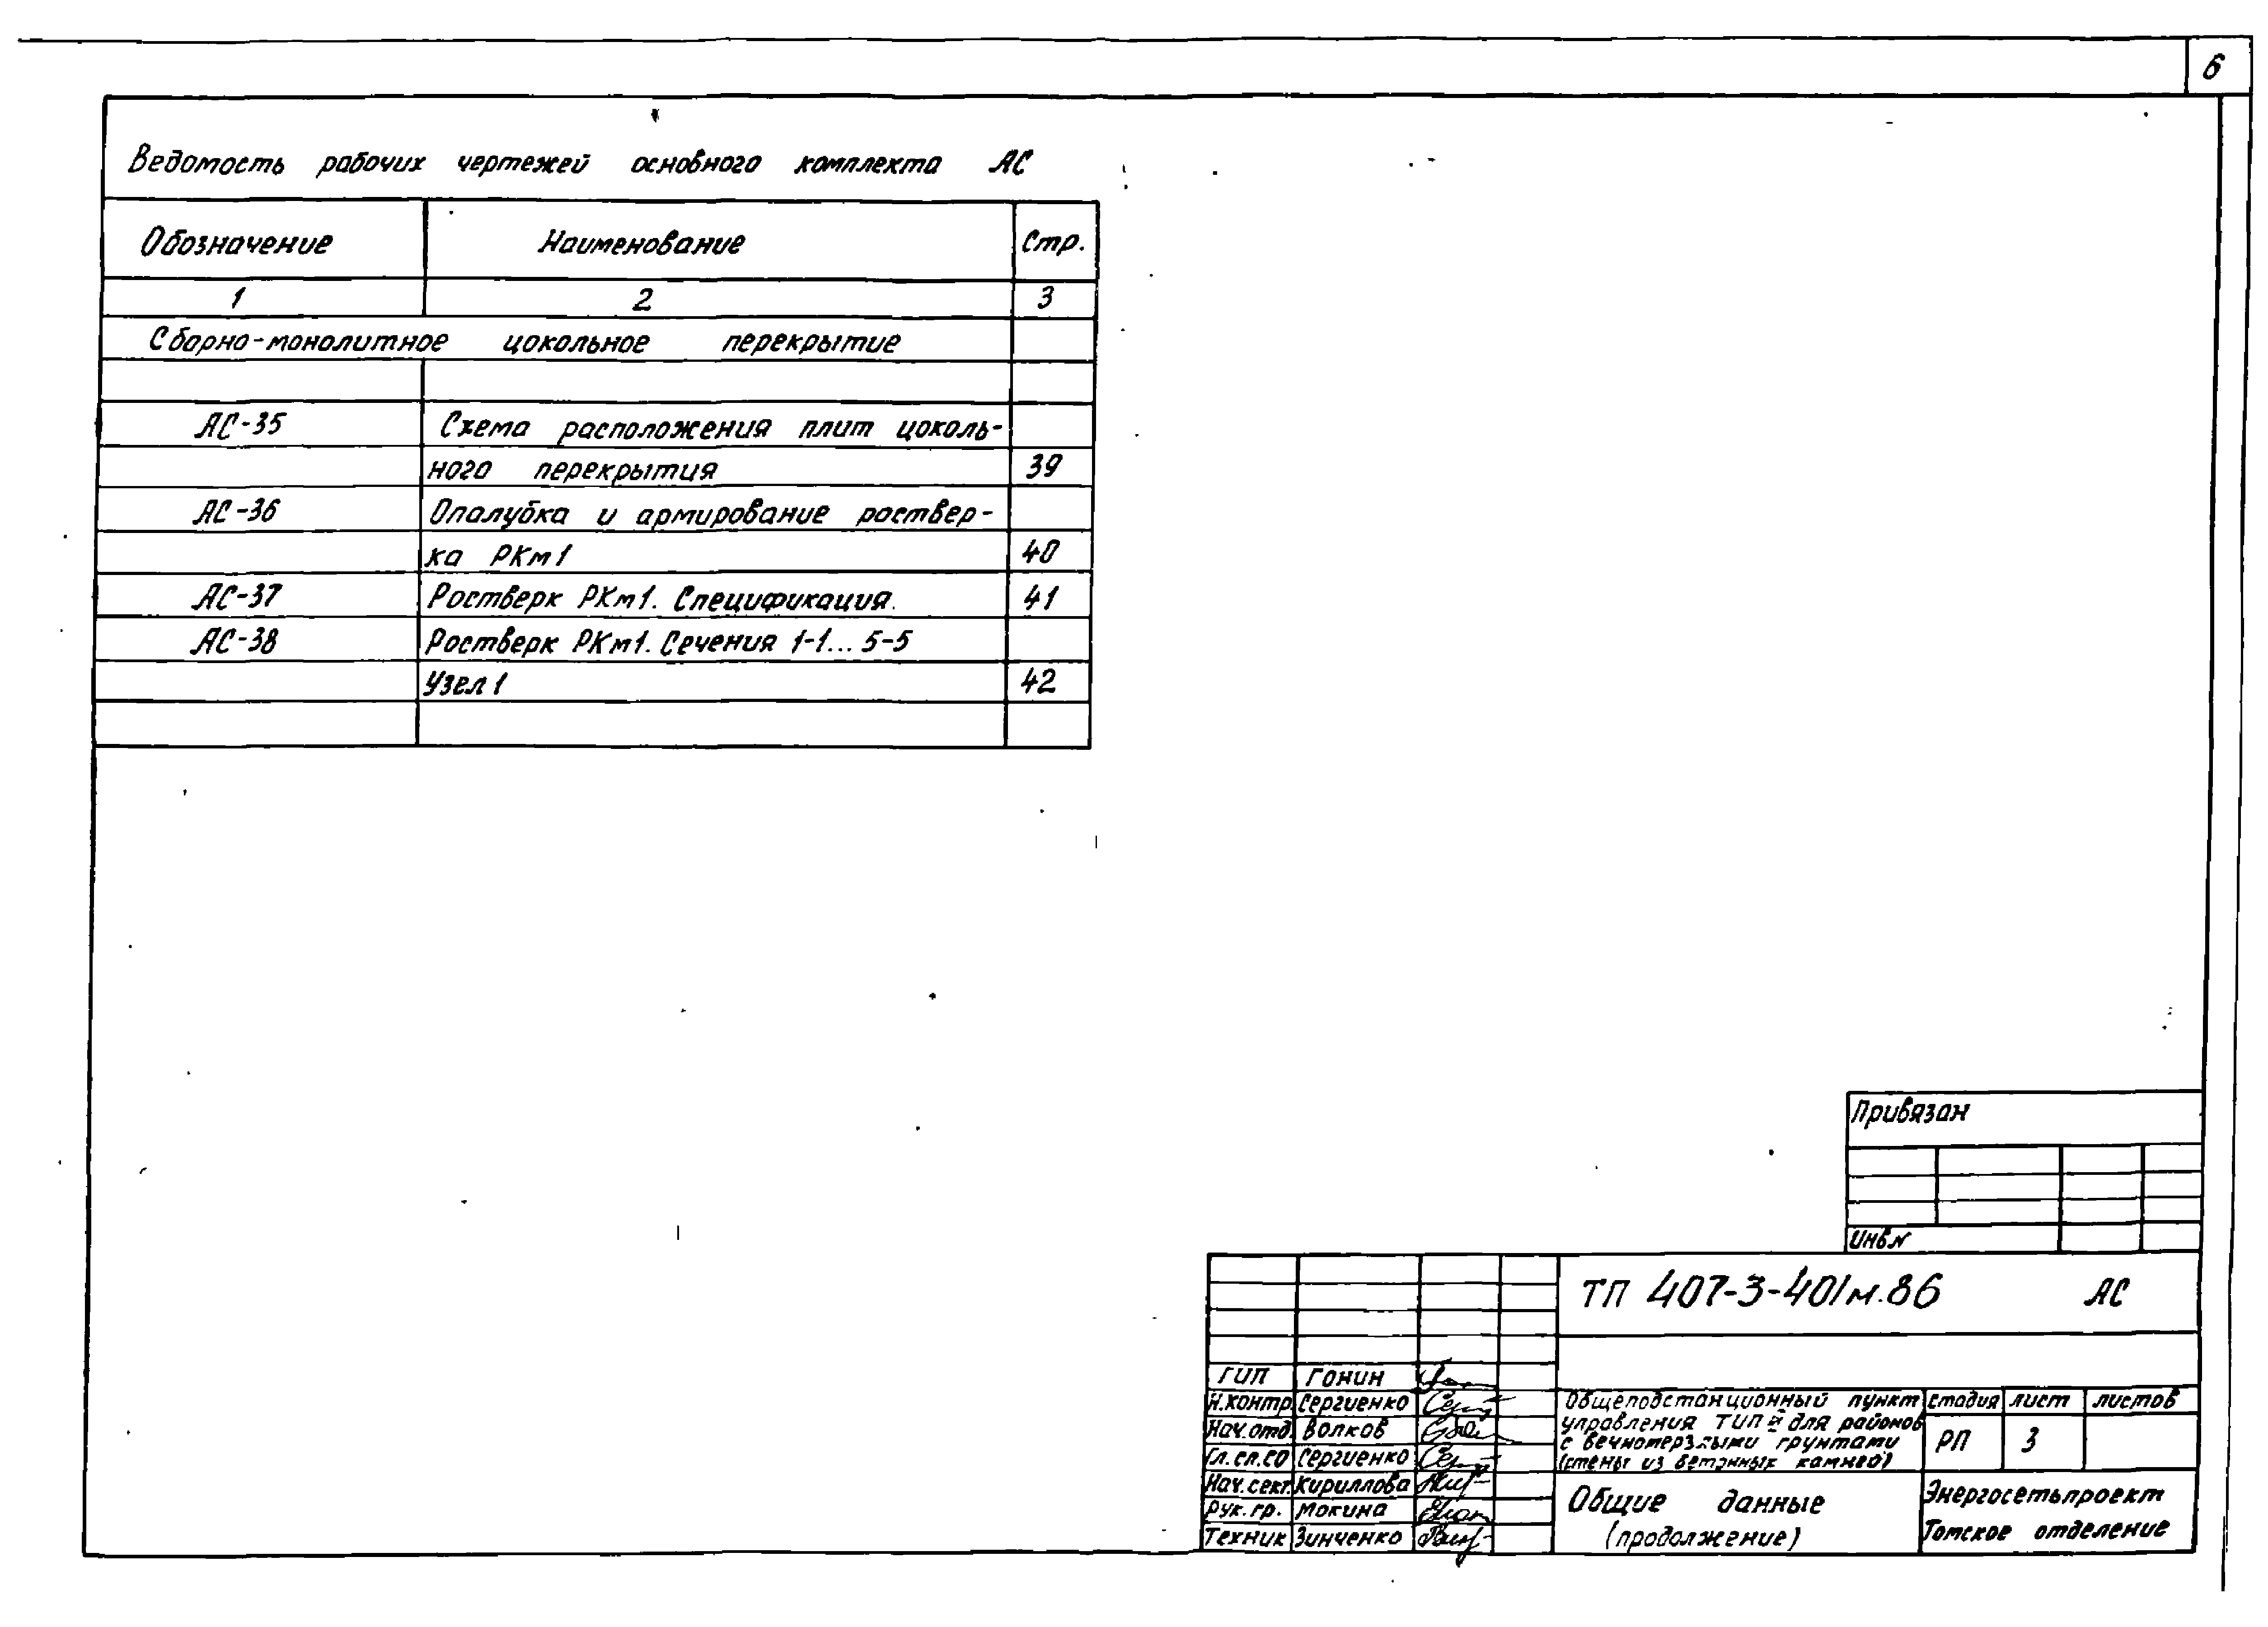 6
Ведомость рабочих чертежей основного комплекта АС
Обозначение Наименование Стр.
1 2 3
Сборно-монолитное цокольное перекрытие
АС-35 Схема расположения плит цоколь-
ного перекрытия 39
АС-36 Опалубка и армирование роствер-
ка РКм1 40
АС-37 Ростверк РКм1. Спецификация. 41
АС-38 Ростверк РКм1. Сечения 1-1... 5-5
Узел 1 42
Привязан
Инв.№
ТП 407-3-401м.86 АС
ГИП Гонин
Н.контр. Сергиенко
Нач.отд. Волков
Гл.сп.СО Сергиенко
Нач.сект. Кириллова
Рук.гр. Мокина
Техник Зинченко
Общеподстанционный пункт
управления тип II для районов
с вечномерзлыми грунтами
(стены из бетонных камней)
стадия лист листов
РП 3
Общие данные
(продолжение)
Энергосетьпроект
Томское отделение